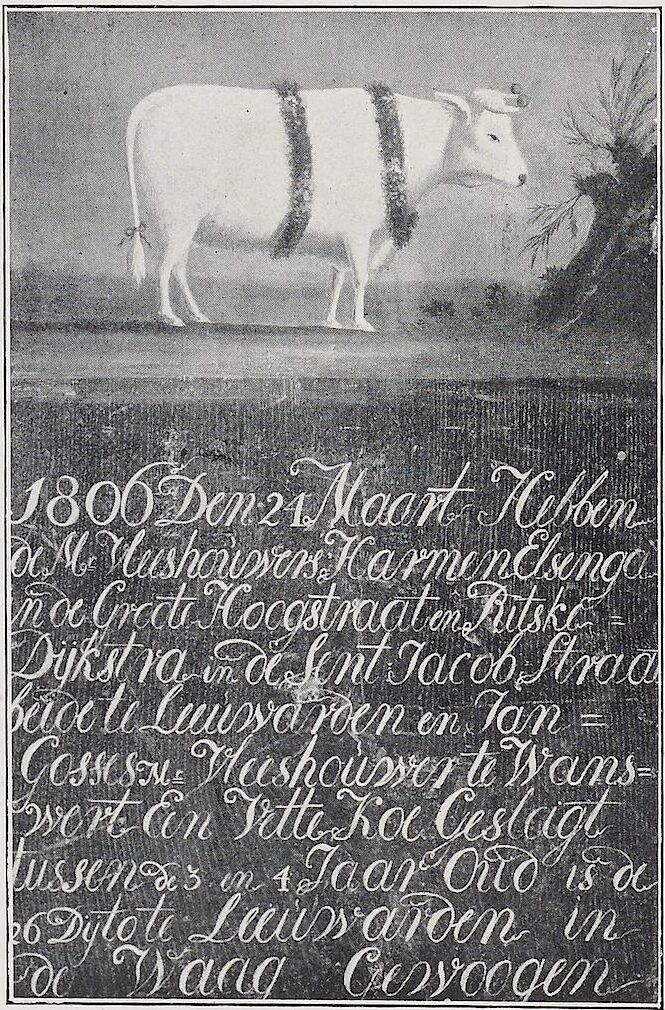 1806 Den 24 Maart Hebben
de Mr Vleeshouwers Harmen Elsenga
in de Groote Hoogstraat en Ritske =
Dijkstra in de Sent Jacob Straat
beide te Leeuwarden en Jan =
Gosses Mr Vleeshouwer te Wans=
wert Een Vette Koe Geslagt
tussen de 3 en 4 Jaar Oud is de
26 Dyto te Leeuwarden in
de Waag Gewoogen